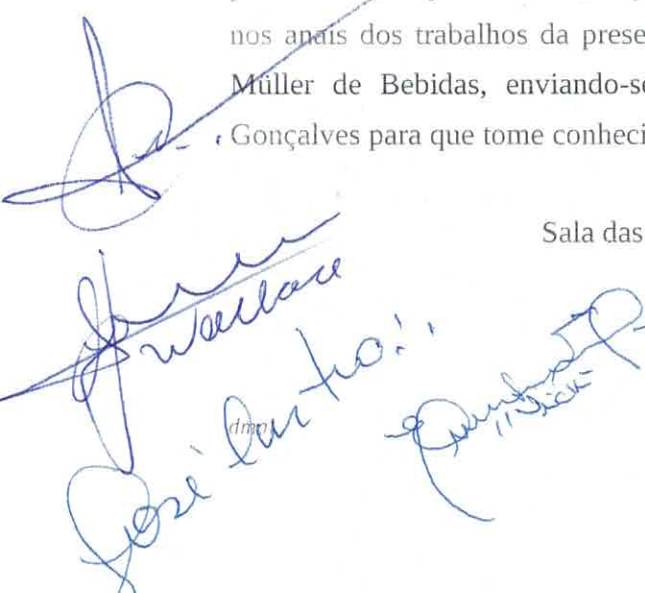 nos anais dos trabalhos da prese
Müller de Bebidas, enviando-s
Gonçalves para que tome conheci
Sala das
Wallace
José
dmp